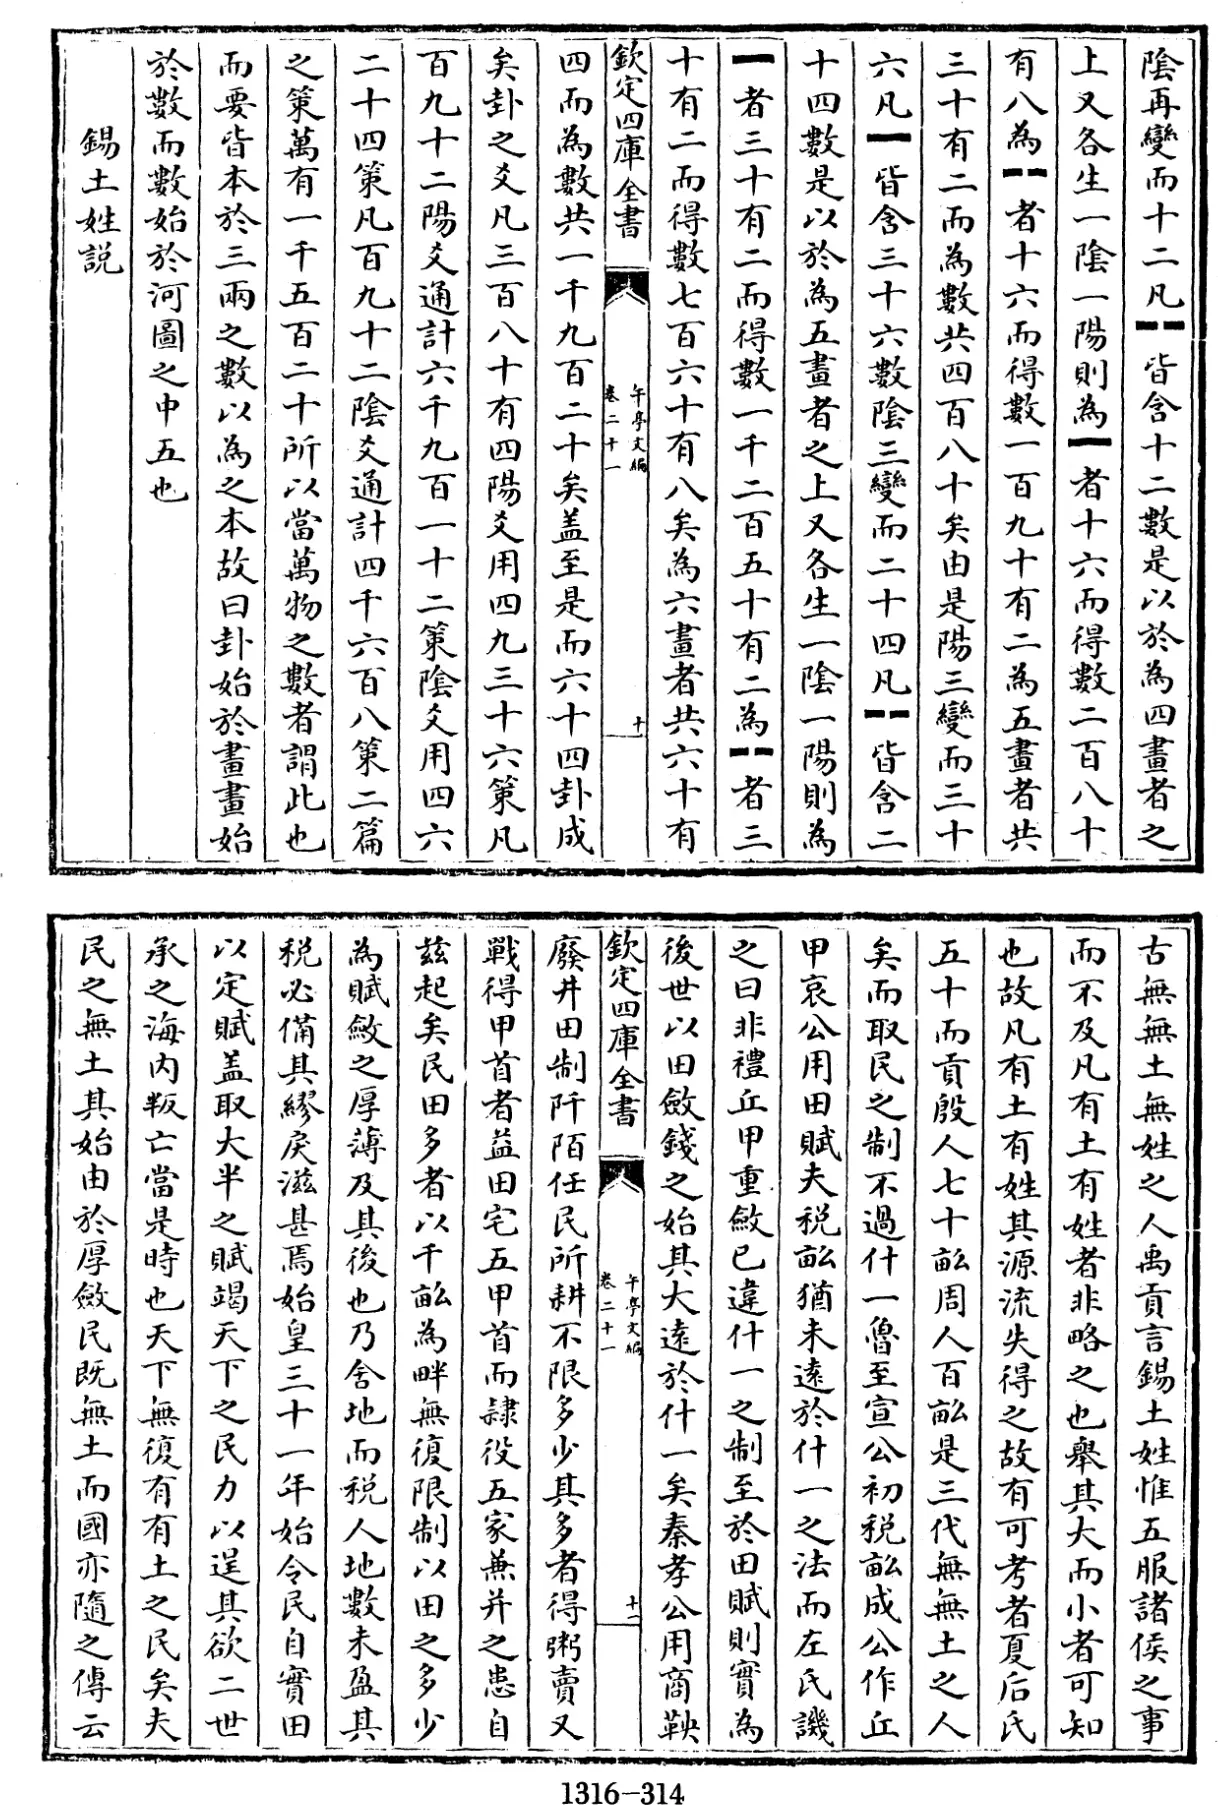 陰再變而十二凡⚋皆含十二數是以於為四畫者之
上又各生一陰一陽則為⚊者十六而得數二百八十
有八為⚋者十六而得數一百九十有二為五畫者共
三十有二而為數共四百八十矣由是陽三變而三十
六凡⚊皆含三十六數陰三變而二十四凡⚋皆含二
十四數是以於為五畫者之上又各生一陰一陽則為
⚊者三十有二而得數一千二百五十有二為⚋者三
十有二而得數七百六十有八矣為六畫者共六十有
欽定四庫全書
午亭文編
卷二十一
十
四而為數共一千九百二十矣盖至是而六十四卦成
矣卦之爻凡三百八十有四陽爻用四九三十六策凡
百九十二陽爻通計六千九百一十二策陰爻用四六
二十四策凡百九十二陰爻通計四千六百八策二篇
之策萬有一千五百二十所以當萬物之數者謂此也
而要皆本於三兩之數以為之本故曰卦始於畫畫始
於數而數始於河圖之中五也
錫土姓説
古無無土無姓之人禹貢言錫土姓惟五服諸侯之事
而不及凡有土有姓者非略之也舉其大而小者可知
也故凡有土有姓其源流失得之故有可考者夏后氏
五十而貢殷人七十畝周人百畝是三代無無土之人
矣而取民之制不過什一魯至宣公初税畝成公作丘
甲哀公用田賦夫税畝猶未遠於什一之法而左氏譏
之曰非禮丘甲重斂已違什一之制至於田賦則實為
後世以田斂錢之始其大遠於什一矣秦孝公用商鞅
欽定四庫全書
午亭文編
卷二十一
十一
廢井田制阡陌任民所耕不限多少其多者得粥賣又
戰得甲首者益田宅五甲首而隷役五家兼并之患自
兹起矣民田多者以千畝為畔無復限制以田之多少
為賦斂之厚薄及其後也乃舍地而税人地數未盈其
税必備其繆戾滋甚焉始皇三十一年始令民自實田
以定賦盖取大半之賦竭天下之民力以逞其欲二世
承之海内叛亡當是時也天下無復有有土之民矣夫
民之無土其始由於厚斂民既無土而國亦隨之傳云
1316-314